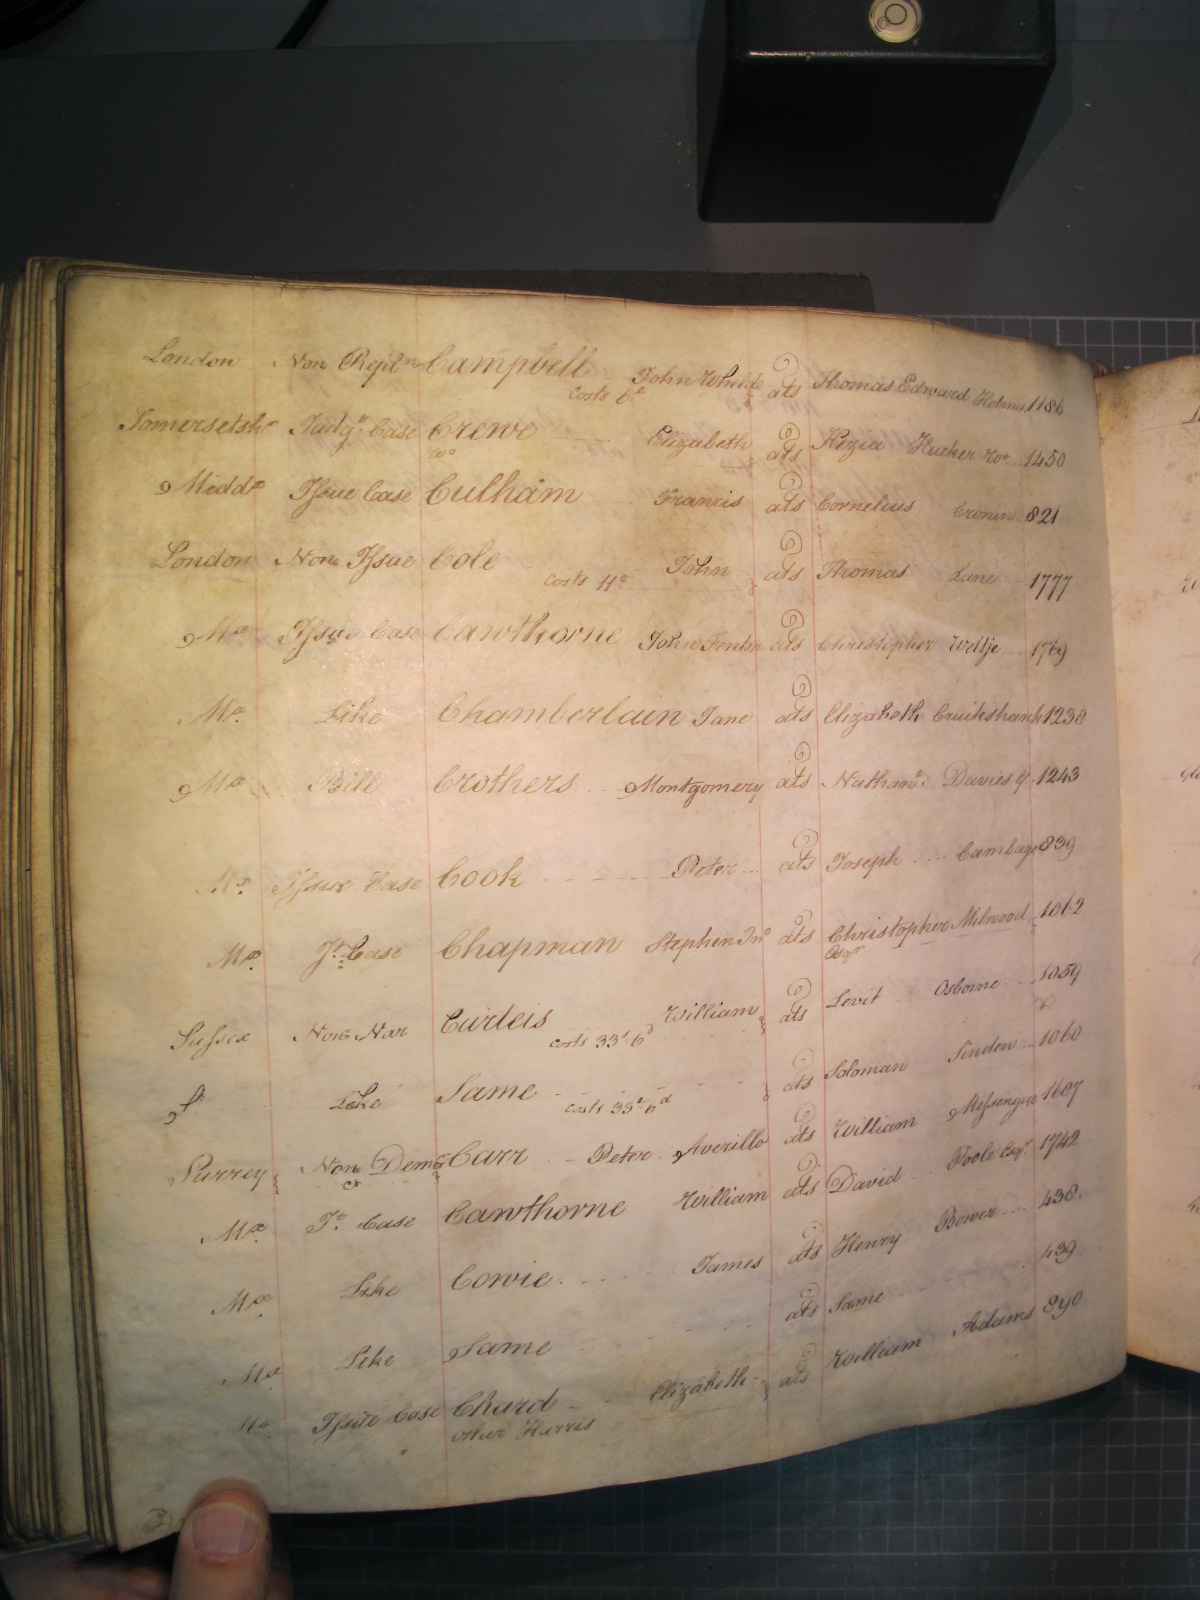 London Non Repl.n Campbell Costs 6.s John Whelde ats Thomas Edward Holmes 1186
Somersetsh.re Judg.t Case Crewe W.o Elizabeth ats Kezia Hucker Wo. 1450
Midd.x Issue Case Culham Francis ats Cornelius Cronin 821
London Non Issue Cole Costs 11.s John ats Thomas Lane 1777
M.x Issue Case Cawthorne John Fenton ats Christopher Weltje 1769
M.x Like Chamberlain Jane ats Elizabeth Cruikshank 1230
M.x Bill Crothers Montgomery ats Nathan.l Davies 1243
M.x Issue Case Cook Peter ats Joseph Cambage 839
M.x J.t Case Chapman Stephen Jn.o ats Christopher Milwood Esq.r 1062
Sussex Non Nar Curteis costs 33.s 6.d William ats Levit Osborne 1059
S. Like Same costs 33.s 6.d ats Soloman Sinden 1060
Surrey Non Dem.r Carr Peter Averillo ats William Messenger 1687
M.x J.t Case Cawthorne William ats David Poole Esq.r 1742
M.x Like Cowie James ats Henry Bower 438.
M.x Like Same ats Same 439
M.x Issue Case Chard other Harris Elizabeth ats William Adams 890